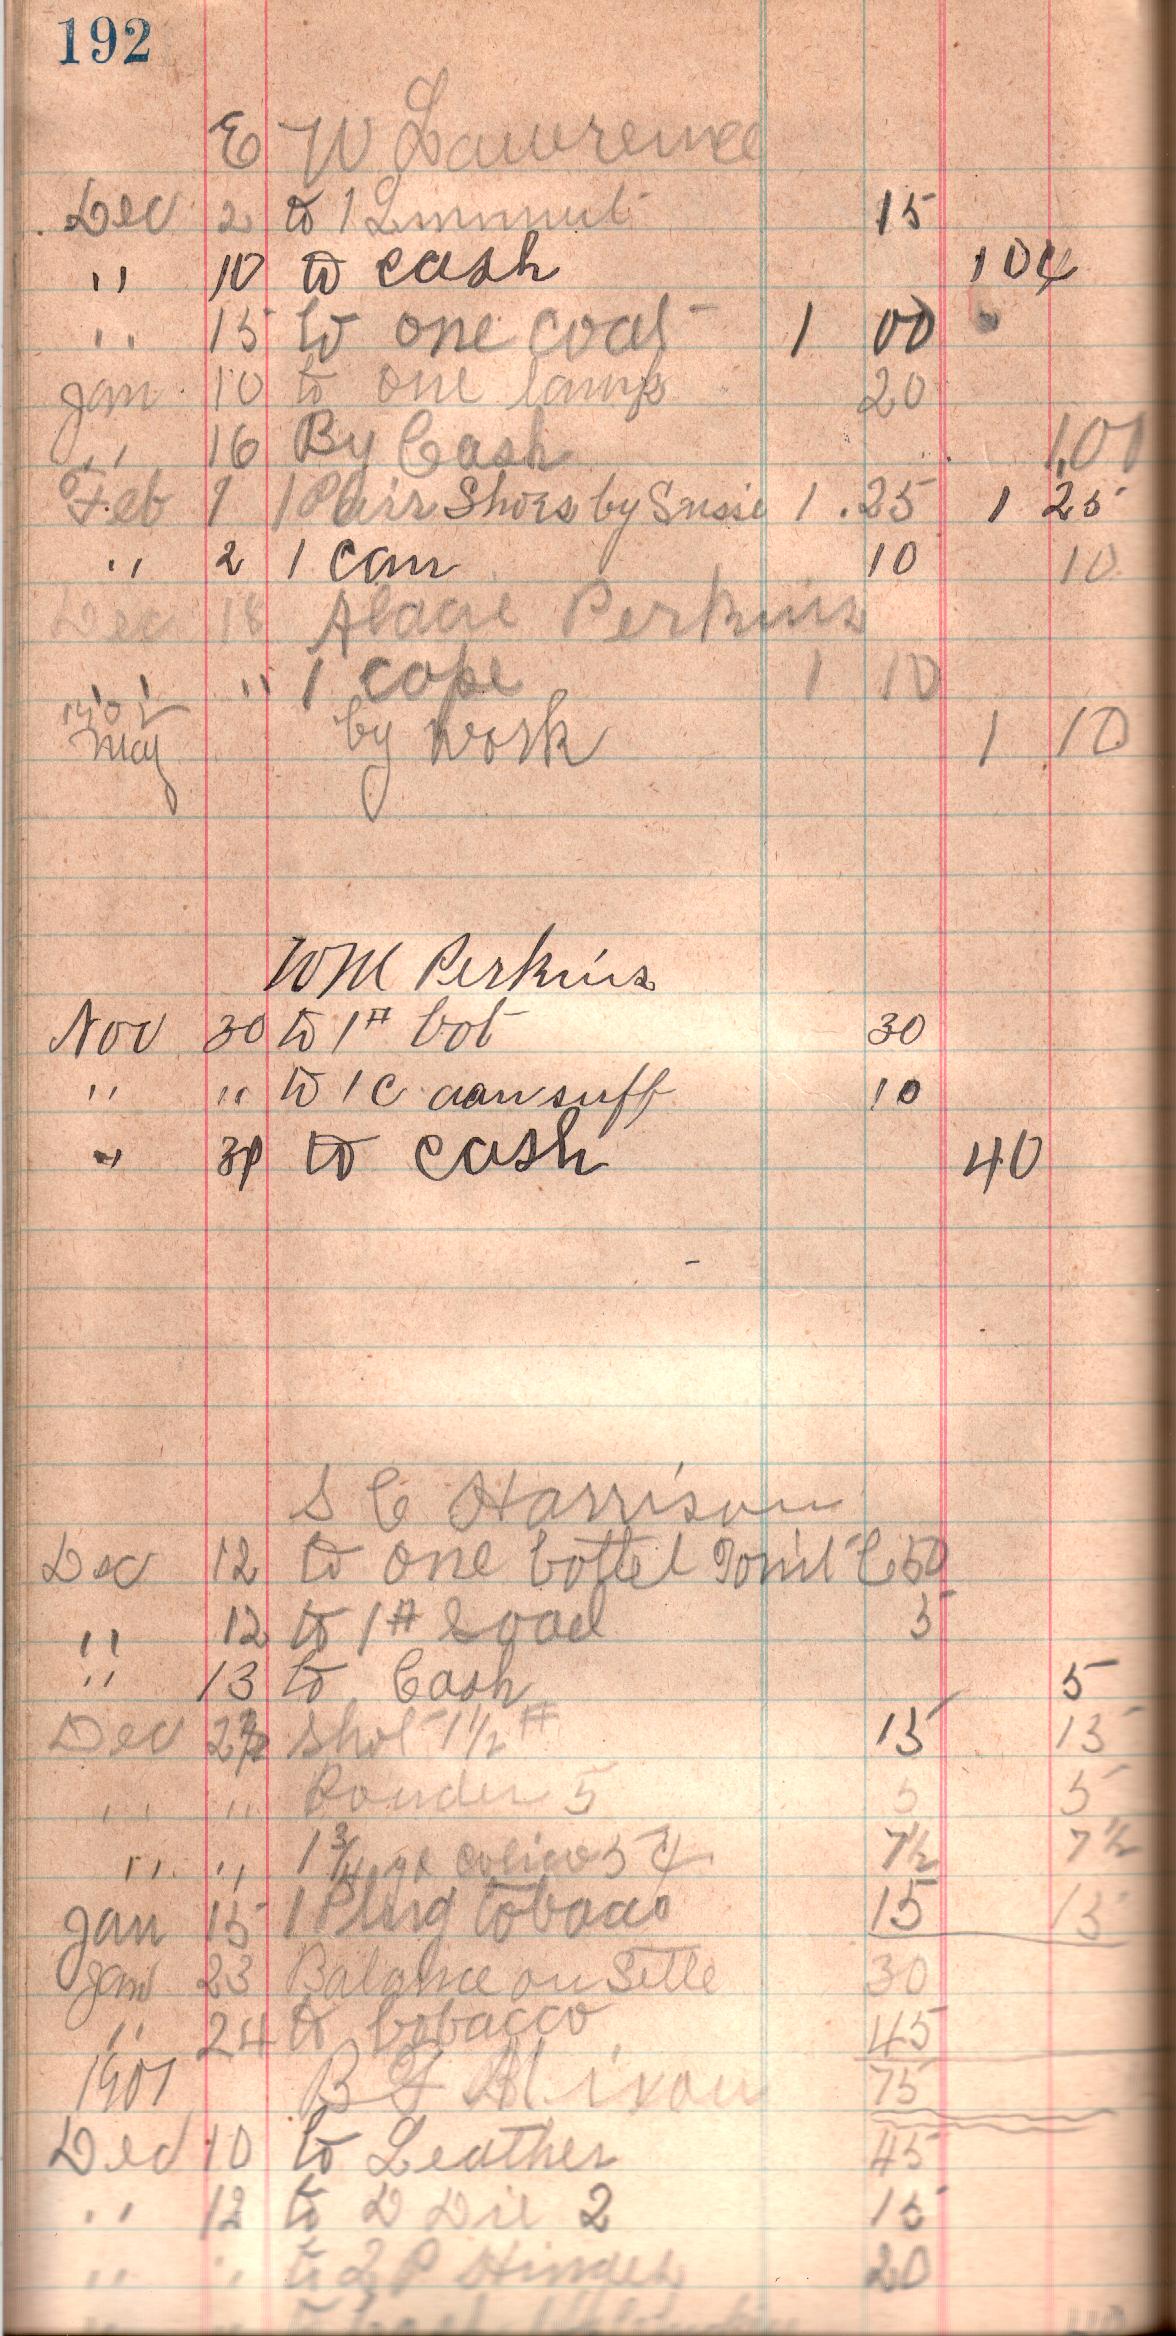 192
E W Lawrence
Dec 2 to 1 15
" 10 to cash 104
" 15 to one coat 1 00
Jan 10 to one lamp 20
" 16 By Cash 1,01
Feb 1 1 Pair Shoes by Susie 1.25 1 25
" 2 1 can 10 10
Dec 18 Perkins
" " 1 cape 1 10
May by work 1 10
WM Perkins
Nov 30 to 1 # 30
" " to 1 C 10
" to cash 40
S C Harrison
Dec 12 to one bottel C 50
" 12 to 1 # 5
" 13 to Cash 5
Dec Shot 1 1/2 # 15 15
" " Pouder 5 5 5
" " 1 3/4 calico 7 1/2 7 1/2
Jan 15 1 Plug tobaco 15 15
Jan 23 Balance on Settle 30
" 24 to tobacco 45
1901 B F Mixon 75
Dec 10 to Leather 45
" 12 to 2 15
" " to 2 P Hinges 20